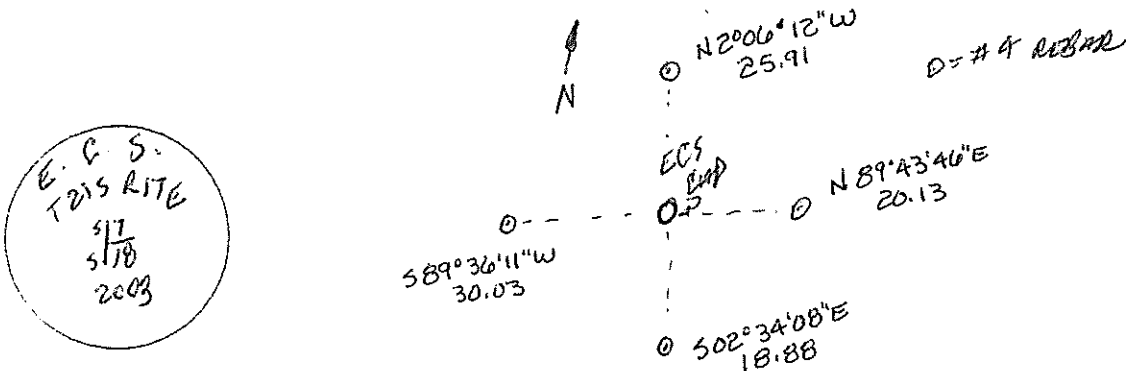 E. C. S.
T21S R17E
S 7
S 18
2003
N
N 2°06'12"W
25.91
⊙ = #4 REBAR
ECS
N 89°43'46"E
20.13
S 89°36'11"W
30.03
S 02°34'08"E
18.88